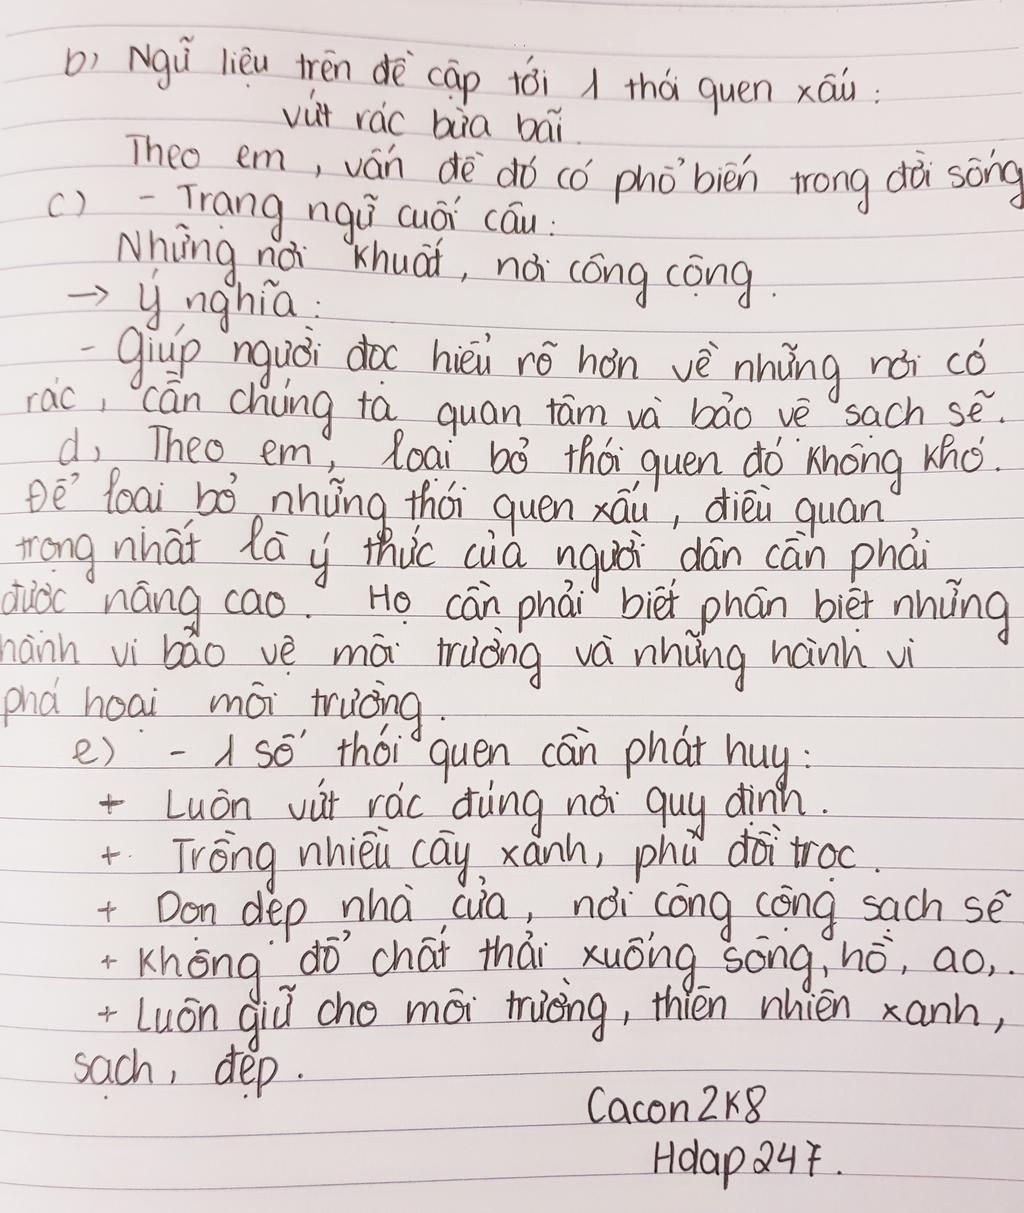 b) Ngữ liệu trên đề cập tới 1 thói quen xấu:
vứt rác bừa bãi.
Theo em, vấn đề đó có phổ biến trong đời sống
c) - Trạng ngữ cuối câu:
Những nơi khuất, nơi công cộng.
→ Ý nghĩa:
- Giúp người đọc hiểu rõ hơn về những nơi có
rác, cần chúng ta quan tâm và bảo vệ sạch sẽ.
d, Theo em, loại bỏ thói quen đó không khó.
Để loại bỏ những thói quen xấu, điều quan
trọng nhất là ý thức của người dân cần phải
được nâng cao. Họ cần phải biết phân biệt những
hành vi bảo vệ môi trường và những hành vi
phá hoại môi trường.
e) - 1 số thói quen cần phát huy:
+ Luôn vứt rác đúng nơi quy định.
+ Trồng nhiều cây xanh, phủ đồi trọc.
+ Dọn dẹp nhà cửa, nơi công cộng sạch sẽ
+ Không đổ chất thải xuống sông, hồ, ao,.
+ Luôn giữ cho môi trường, thiên nhiên xanh,
sạch, đẹp.
Cacon2k8
Hdap247.